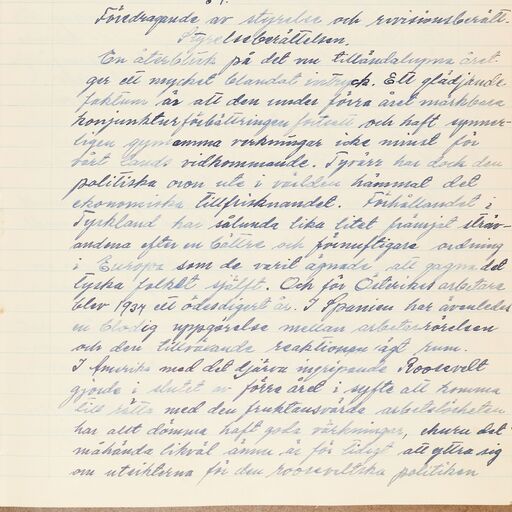 Föredragande av styrelse och revisionsberätt-
Styrelseberättelsen.
En återblick på det nu tilländalupna året
ger ett mycket blandat intryck. Ett glädjande
faktum är att den under förra året märkbara
konjunkturförbättringen fortsatt och haft synner-
ligen gynsamma verkningar icke minst för
vårt lands vidkommande. Tyvärr har dock den
politiska oron ute i världen hämmat det
ekonomiska tillfrisknandet. Förhållandet i
Tyskland har sålunda lika litet främjat sträv-
andena efter en bättre och förnuftigare ordning
i Europa som de varit ägnade att gagna det
tyska folket självt. Och för Österrikes arbetare
blev 1934 ett ödesdigert år. I Spanien har ävenledes
en blodig uppgörelse mellan arbetarrörelsen
och den tillväxande reaktionen ägt rum.
I Amerika med det djärva ingripande Roosevelt
gjorde i slutet av förra året i syfte att komma
till rätta med den fruktansvärda arbetslösheten
har allt dömma haft goda verkningar, ehuru det
måhända likväl ännu är för tidigt att yttra sig
om utsikterna för den rooseveltska politiken